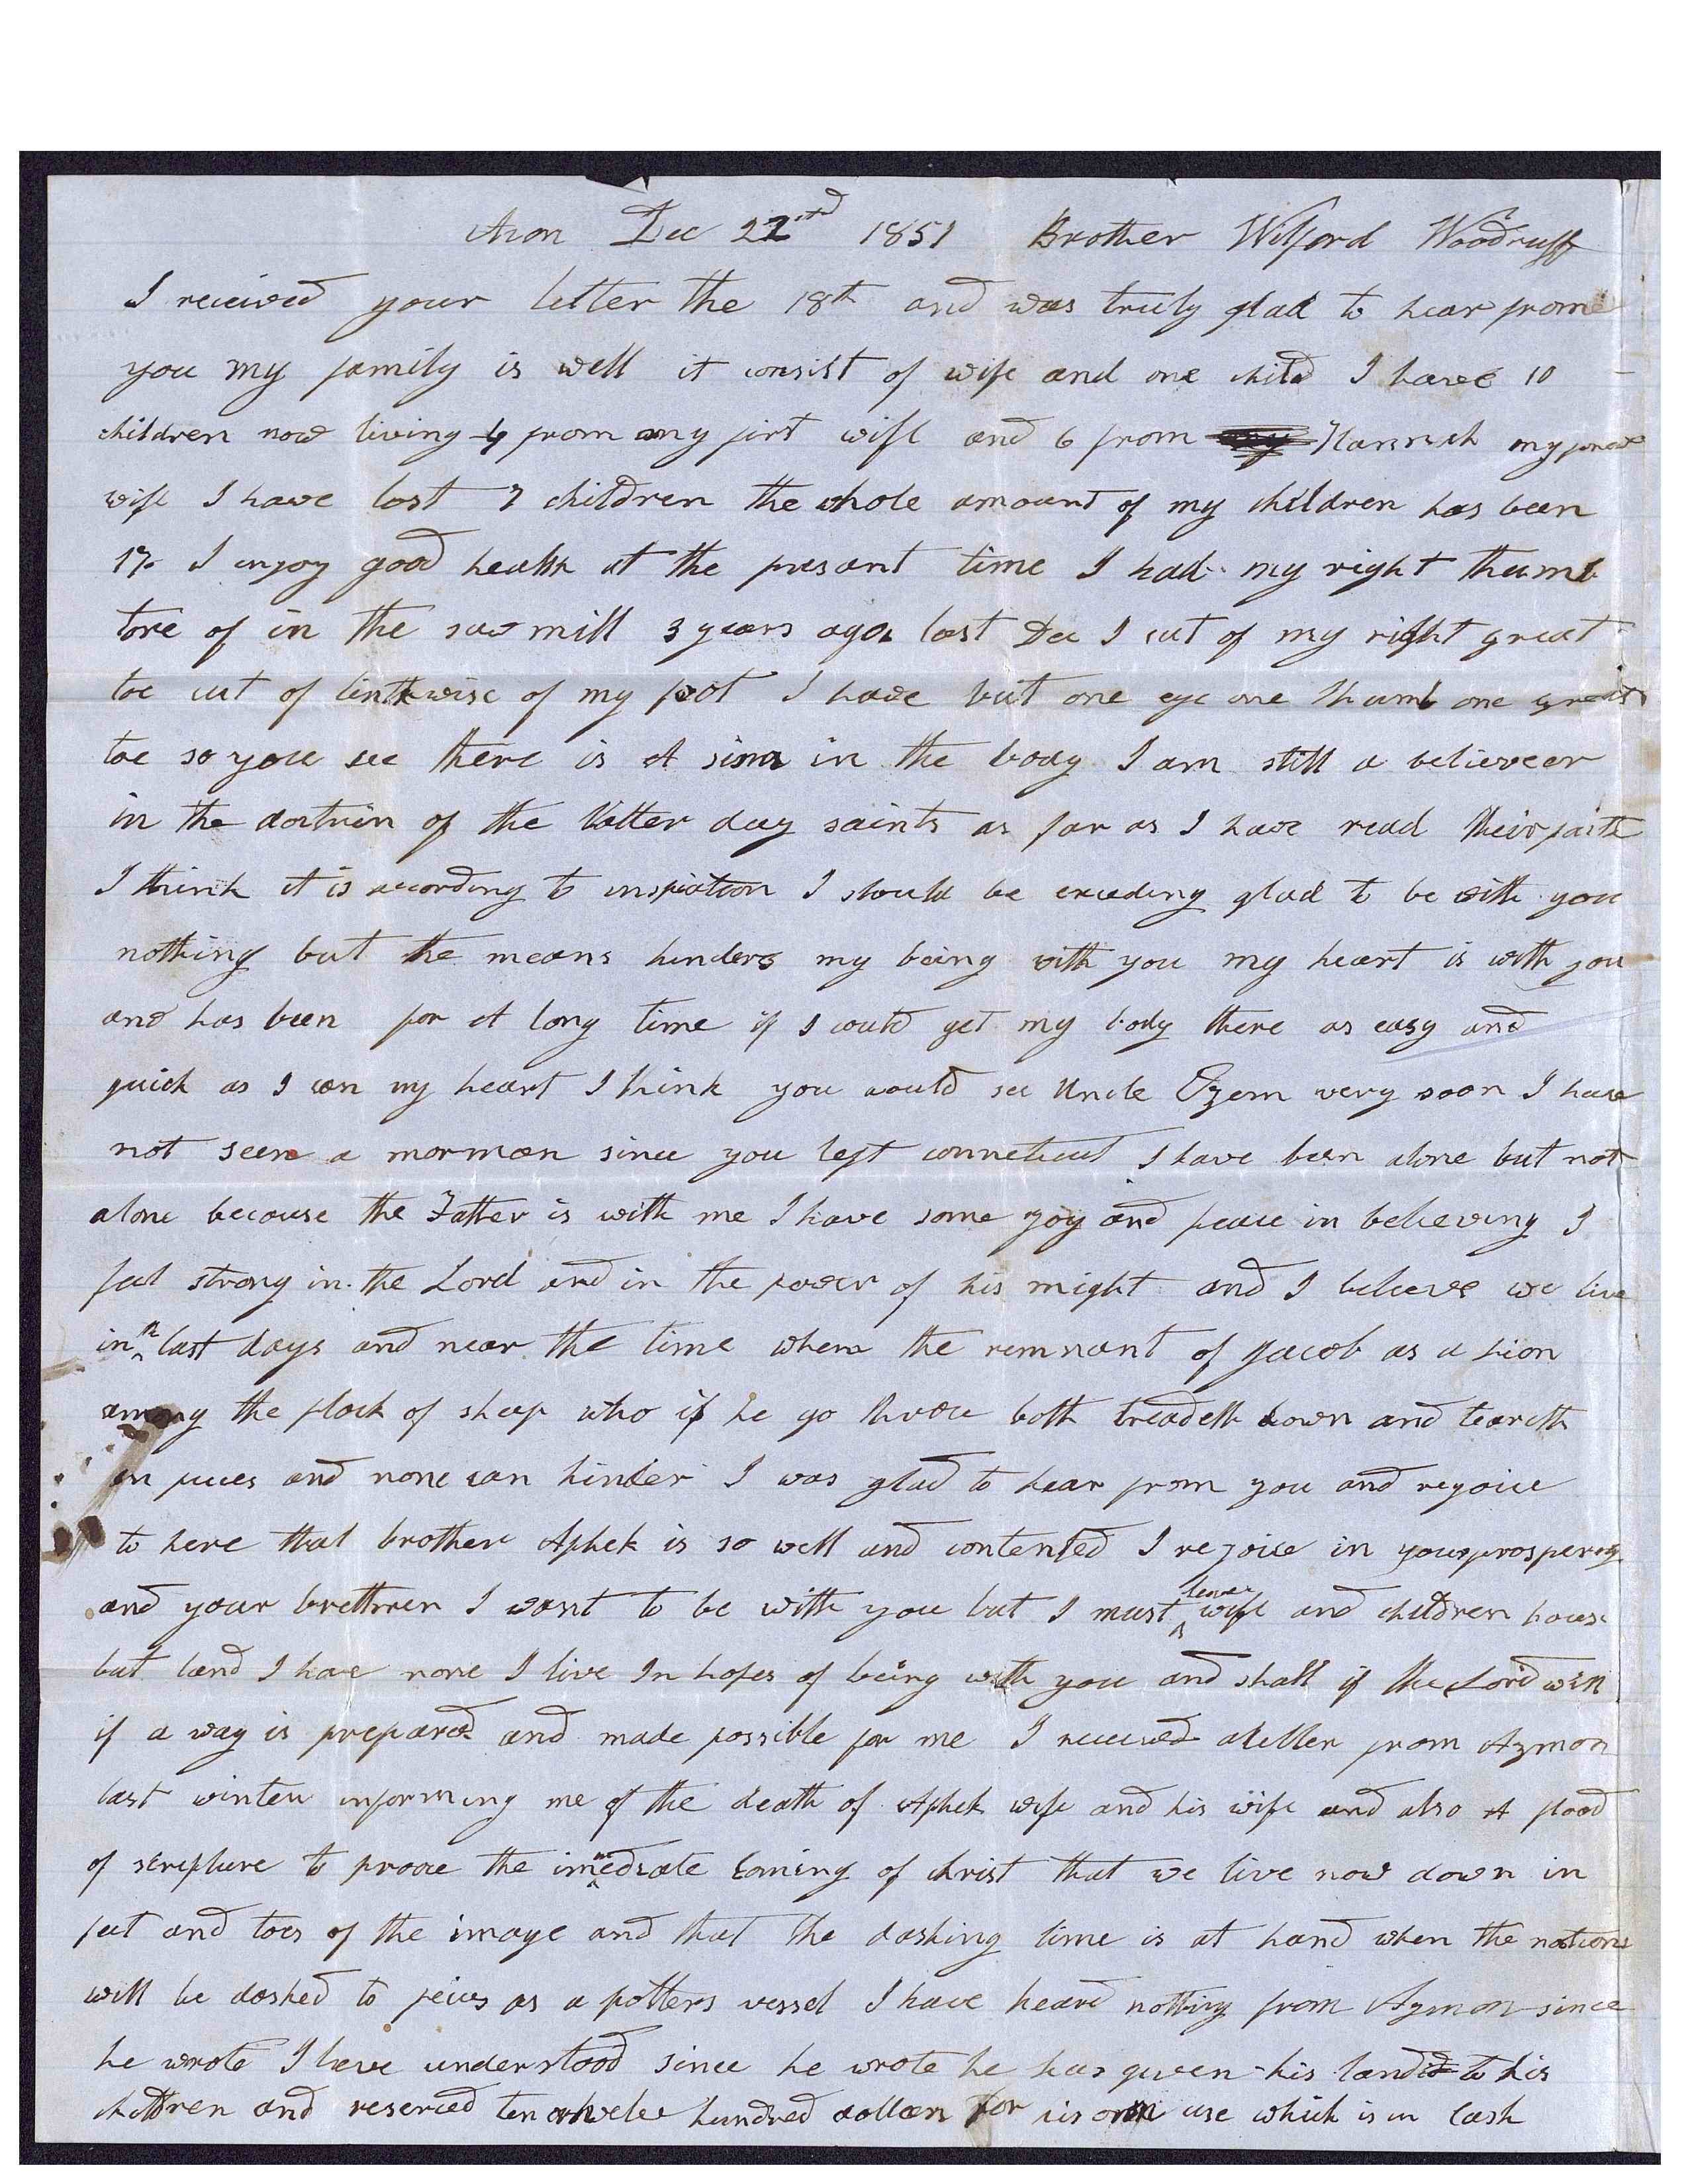 Avon Dec 22nd 1851 Brother Wilford Woodruff
I received your letter the 18th and was truly glad to hear frome
you my family is well it consist of wife and one child I have 10
children now living 4 from my firt wife and 6 from Hannah my
wife I have lost 7 children the whole amount of my children has been
17 I injoy good health at the presant time I had my right thumb
tore of in the saw mill 3 years ago last Dec I cut of my right great
toe cut of of my foot I have but one eye one thumb one great
toe so you see there is A sism in the body I am still a believeer
in the doctrin of the latter day saints as far as I have read their faith
I think it is according to inspiation I should be exceding glad to be with you
nothing but the means hinders my being with you my heart is with you
and has been for A long time if I could get my body there as easy and
quick as I can my heart I think you would see Uncle Ozem very soon I have
not seen a mormon since you left conneticut I have been alone but not
alone because the Father is with me I have some joy and peace in believing I
feel strong in the Lord and in the power of his might and I believe we live
in th last days and near the time when the remnant of Jacob as a lion
among the flock of sheep who if he go throu both treadeth down and teareth
in pieces and none can hinder I was glad to hear from you and rejoice
to here that brother Aphek is so well and contented I rejoice in your prosperity
and your brethren I want to be with you but I must leave wife and children house
but land I have none I live In hopes of being with you and shall if the Lord will
if a way is prepared and made possible for me I received a letter from Azmon
last winter informing me of the death of Aphek wife and his wife and also A flood
of scripture to proove the imediate coming of christ that we live now down in
feet and toes of the image and that the dashing time is at hand when the nations
will be dashed to peices as a potters vessel I have heard nothing from Azmon since
he wrote I have understood since he wrote he has given his land to his
children and reserved ten or twelve hundred dollars for his own use which is in cash